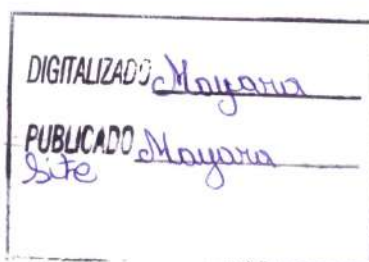 DIGITALIZADO Mayara
PUBLICADO Mayara
Site